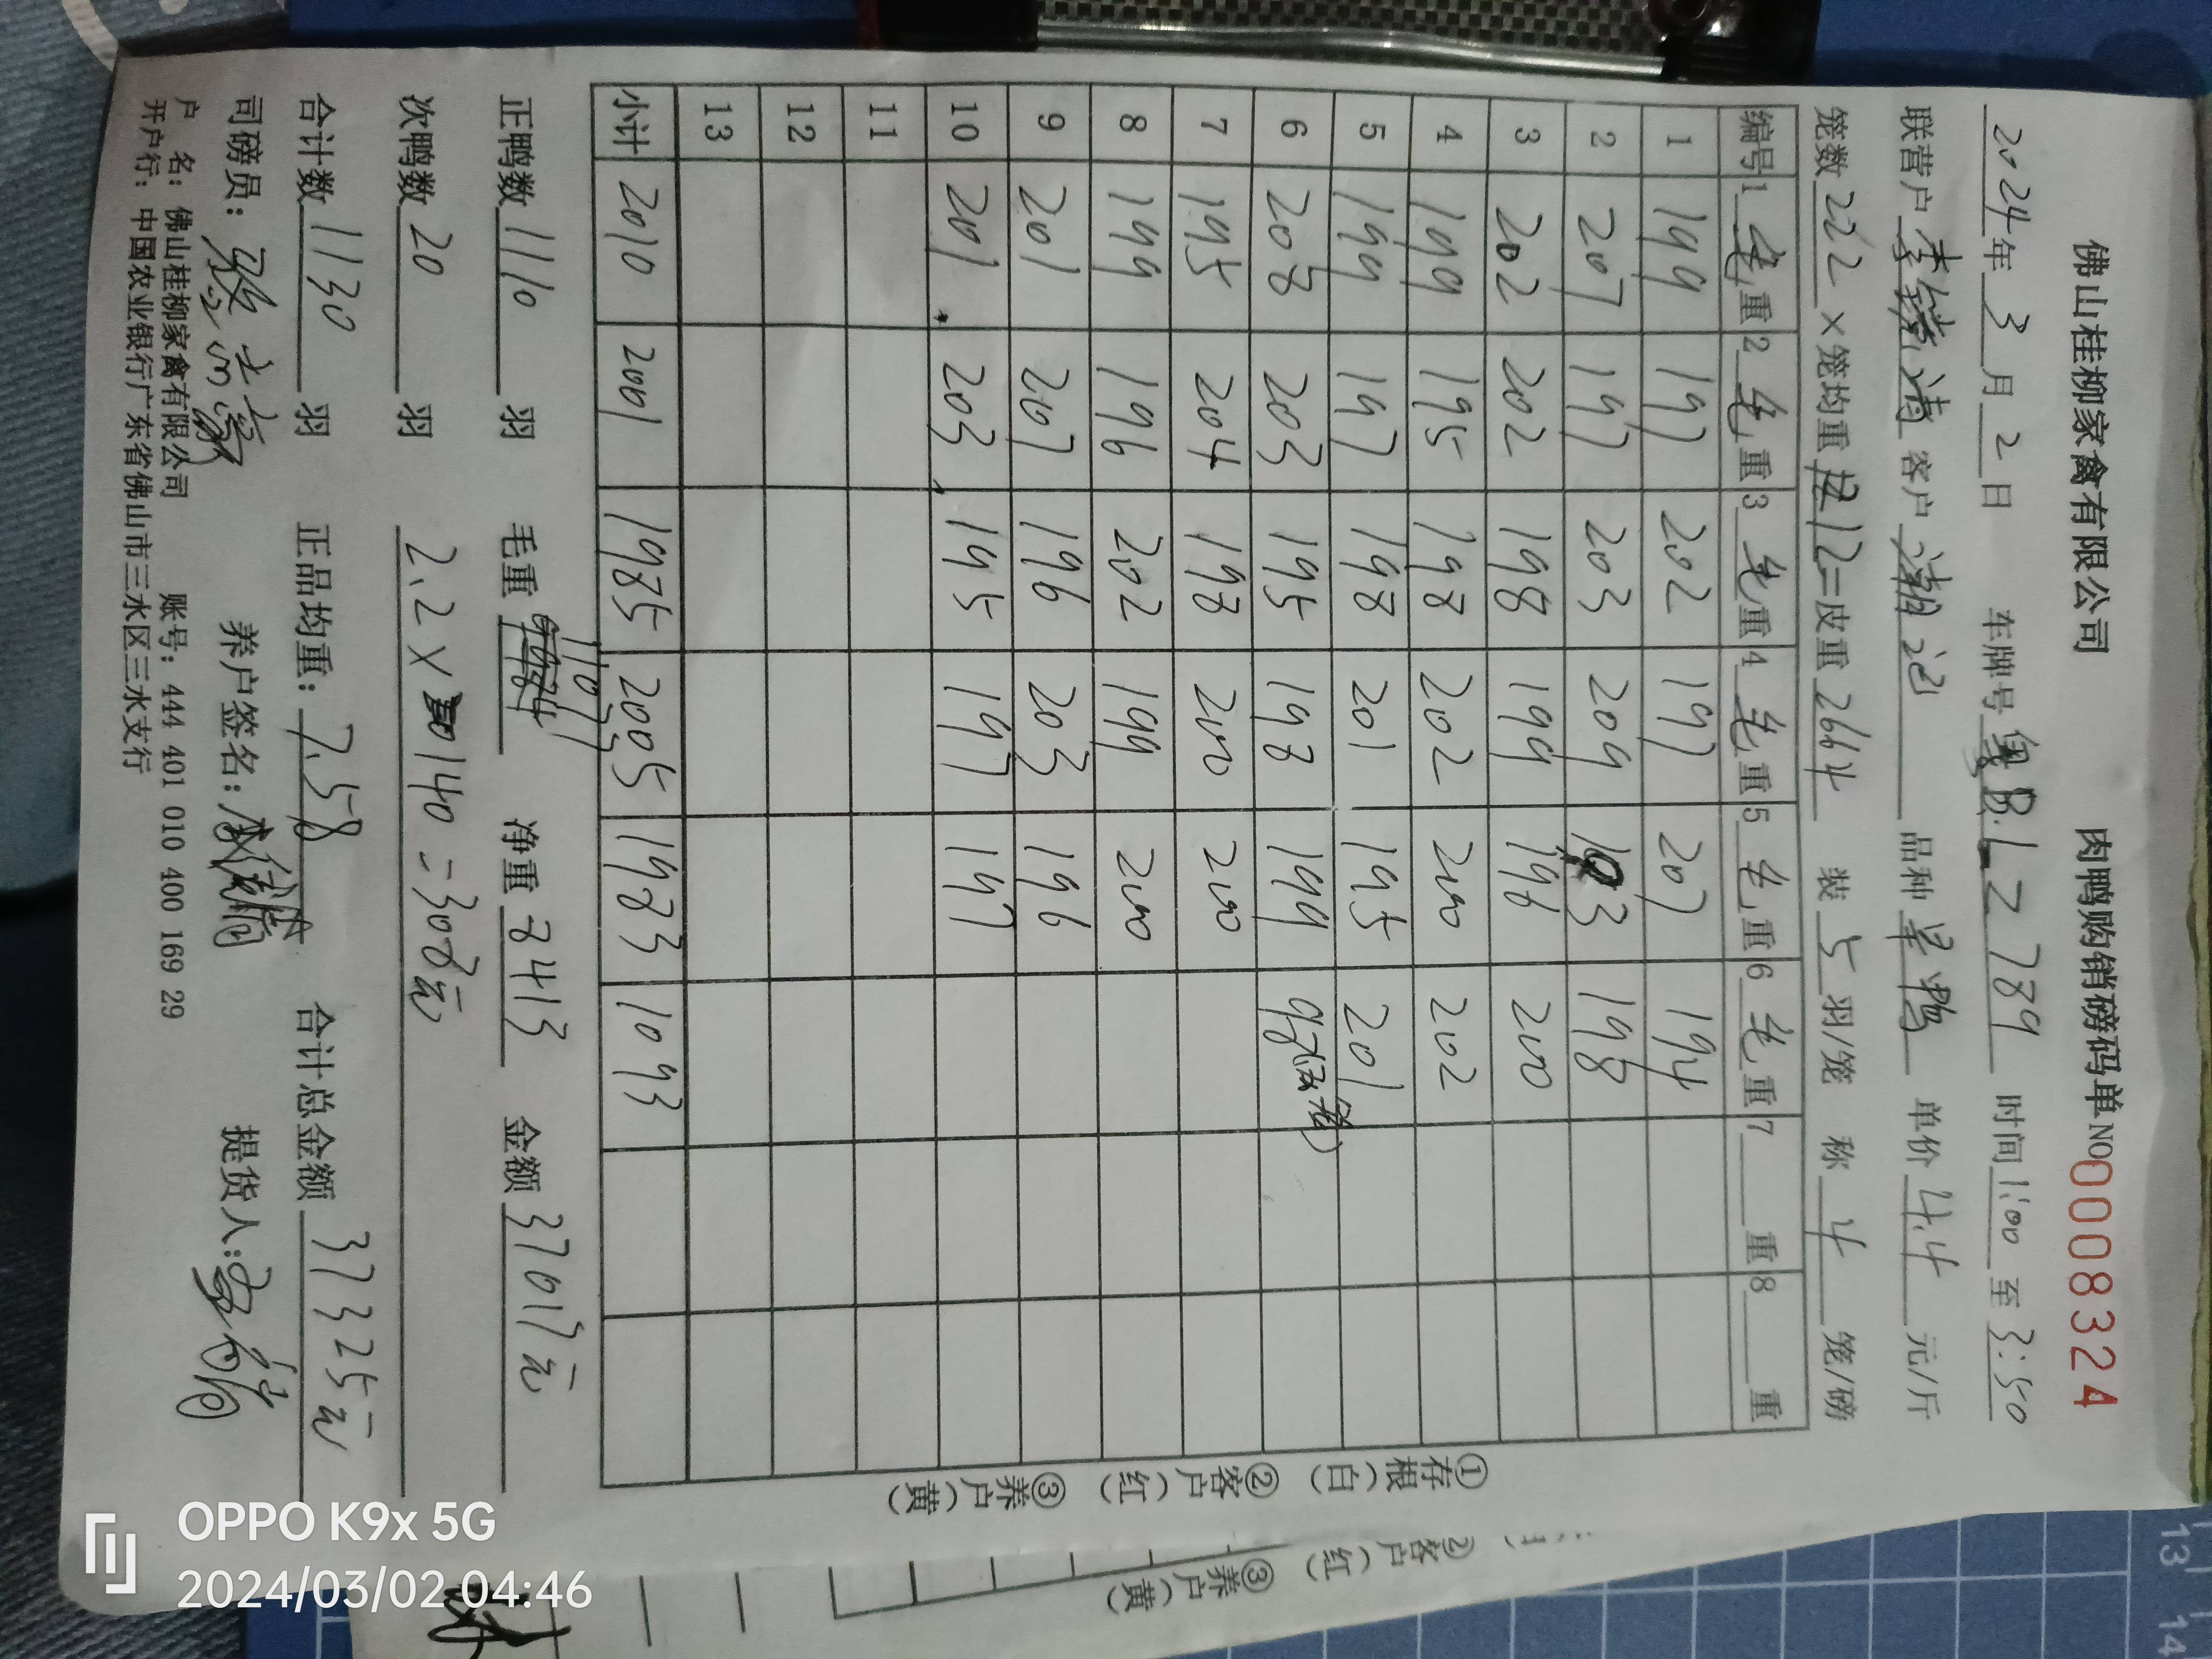 佛山桂柳家禽有限公司 肉鸭购销磅码单 NO 0008324
2024年3月2日 车牌号粤B.L2789 时间1:00至3:50
联营户 客户潮记 品种 单价4.4元/斤
笼数222×笼均重12=皮重2664 装5羽/笼 称4笼/磅
编号 1毛重 2毛重 3毛重 4毛重 5毛重 6毛重 7重 8重
1 199 197 202 197 207 194
2 207 197 203 209 193 198
3 202 202 198 199 196 200
4 199 195 198 202 200 202
5 199 197 198 201 195 201
6 208 203 195 198 199 98
7 195 204 198 200 200
8 199 196 202 199 200
9 201 207 196 203 196
10 201 203 195 197 197
11
12
13
小计 2010 2001 1985 2005 1983 1093
正鸭数1110羽 毛重11077 净重8413 金额37017元
次鸭数20羽 2.2×140=308元
合计数1130羽 正品均重:7.58 合计总金额37325元
司磅员: 养户签名: 提货人:
户 名:佛山桂柳家禽有限公司 账号:444 401 010 400 169 29
开户行:中国农业银行广东省佛山市三水区三水支行
①存根(白) ②客户(红) ③养户(黄)
②客户(红)
③养户(黄)
13
14
OPPO K9x 5G
2024/03/02 04:46